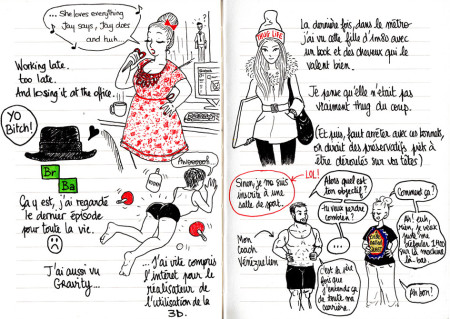 ... She loves everything
Jay says, Jay does
and huh...
Working late.
too late.
And losing it at the office.
YO
Bitch!
Br
Ba
Ça y est, j'ai regardé
le dernier épisode
pour toute la vie.
J'ai aussi vu
GRAVITY...
Awooooooh
...J'ai vite compris
l'intérêt pour le
réalisateur de
l'utilisation de la
3D.
THUG LIFE
La dernière fois, dans le métro
j'ai vu cette fille d'1m80 avec
un look et des cheveux qui le
valent bien.
Je pense qu'elle n'était pas
vraiment thug du coup.
(Et puis, faut arrêter avec ces bonnets,
on dirait des préservatifs prêt à
être déroulés sur vos têtes)
Sinon, je me suis
inscrite à une
salle de sport.
LOL!
Mon
coach
Vénézuelien
Alors quel est
ton objectif ?
Tu veux perdre
combien ?
...
C'est la 1ère
fois que
j'entends ça
de toute ma
carrière.
Comment ça ?
Ah! euh,
rien, je veux
juste me
sur la machine
là-bas.
Ah bon!